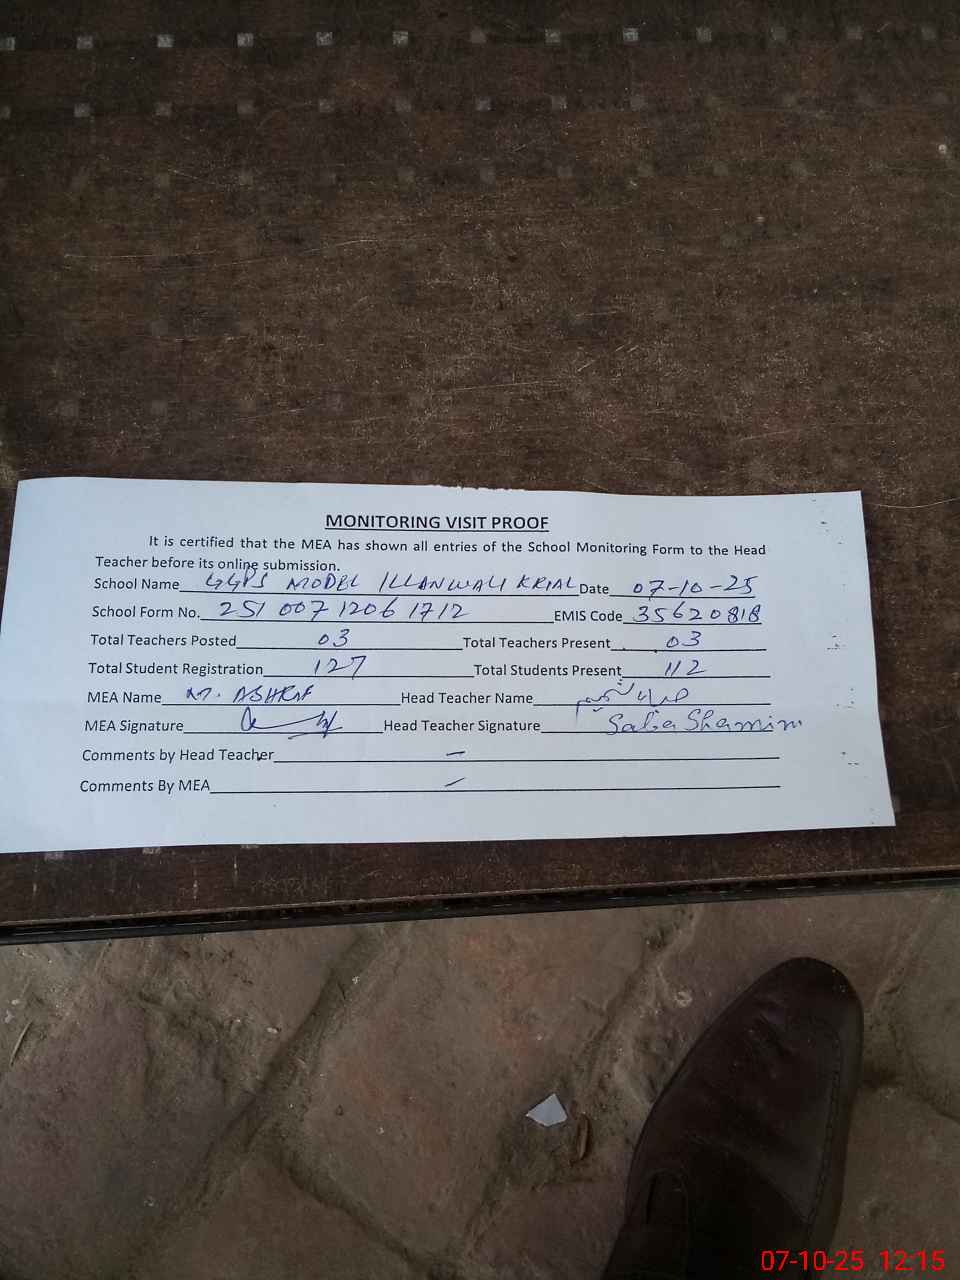 MONITORING VISIT PROOF
It is certified that the MEA has shown all entries of the School Monitoring Form to the Head
Teacher before its online submission.
School Name GGPS MODEL ILLANWALI KRIAL Date 07-10-25
School Form No. 251 007 1206 1712 EMIS Code 35620818
Total Teachers Posted 03 Total Teachers Present 03
Total Student Registration 127 Total Students Present 112
MEA Name M. ASHRAF Head Teacher Name
MEA Signature Head Teacher Signature Salia Shamim
Comments by Head Teacher –
Comments By MEA –
07-10-25 12:15